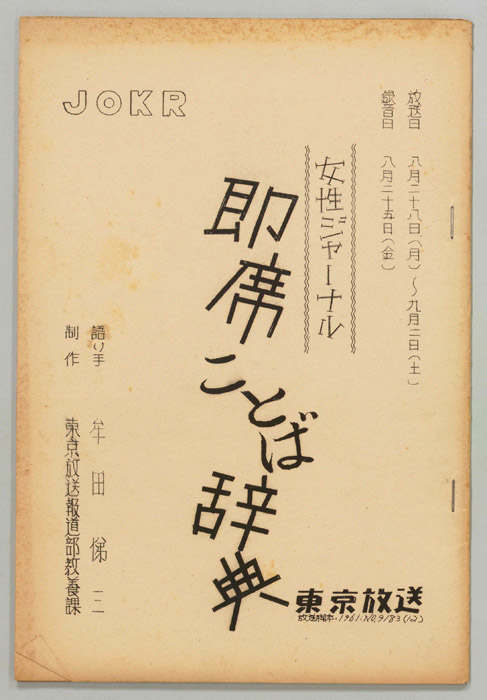 JOKR
放送日 八月二十八日(月)〜九月二日(土)
録音日 八月二十五日(金)
女性ジャーナル
即席ことば辞典
語り手 牟田悌三
制作 東京放送報道部教養課
東京放送
放送脚本・1961・NO,9183(12)